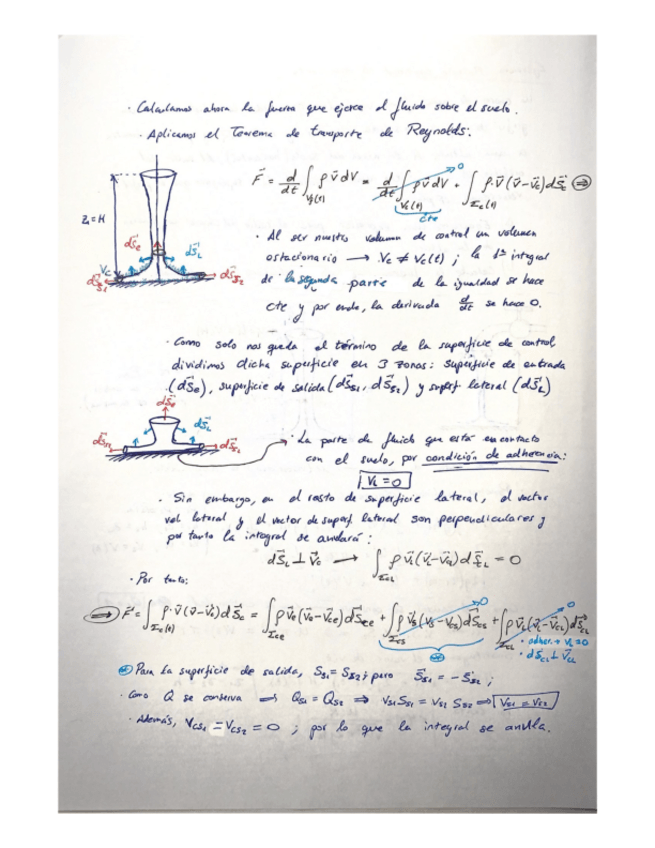 · Calculamos ahora la fuerza que ejerce el fluido sobre el suelo.
· Aplicamos el Teorema de transporte de Reynolds:
F⃗ = d/dt ∫_{Vf(t)} ρ v⃗ dV = d/dt ∫_{Vc(t)} ρ v⃗ dV + ∫_{Σc(t)} ρ·v⃗ (v⃗ - v⃗c) dS⃗c ⇒
0
cte
z₁=H
dS⃗e
dS⃗L
Vc
dS⃗S1
dS⃗S2
· Al ser nuestro volumen de control un volumen
estacionario → Vc ≠ Vc(t) ; la 1ª integral
de la segunda parte de la igualdad se hace
cte y por ende, la derivada d/dt se hace 0.
· Como solo nos queda el término de la superficie de control
dividimos dicha superficie en 3 zonas: superficie de entrada
(dS⃗e), superficie de salida (dS⃗S1, dS⃗S2) y superf lateral (dS⃗L)
dS⃗e
dS⃗L
dS⃗S1
dS⃗S2
· La parte de fluido que está en contacto
con el suelo, por condición de adherencia:
VL = 0
· Sin embargo, en el resto de superficie lateral, el vector
vel lateral y el vector de superf lateral son perpendiculares y
por tanto la integral se anulará:
dS⃗L ⊥ V⃗c → ∫_{ΣcL} ρ v⃗L (v⃗L - v⃗cL) dS⃗cL = 0
· Por tanto:
⇒ F⃗ = ∫_{Σc(t)} ρ·v⃗ (v⃗ - v⃗c) dS⃗c = ∫_{Σce} ρ v⃗e (v⃗e - v⃗ce) dS⃗ce + ∫_{Σcs} ρ v⃗s (v⃗s - v⃗cs) dS⃗cs + ∫_{ΣcL} ρ v⃗L (v⃗L - v⃗cL) dS⃗cL
0
0
· adher. → VL=0
· dS⃗cL ⊥ V⃗cL
⊛ Para la superficie de salida, SS1 = SS2; pero S⃗S1 = - S⃗S2 ;
· Como Q se conserva ⇒ QS1 = QS2 ⇒ VS1 SS1 = VS2 SS2 ⇒ VS1 = VS2
· Además, VCS1 = VCS2 = 0 ; por lo que la integral se anula.